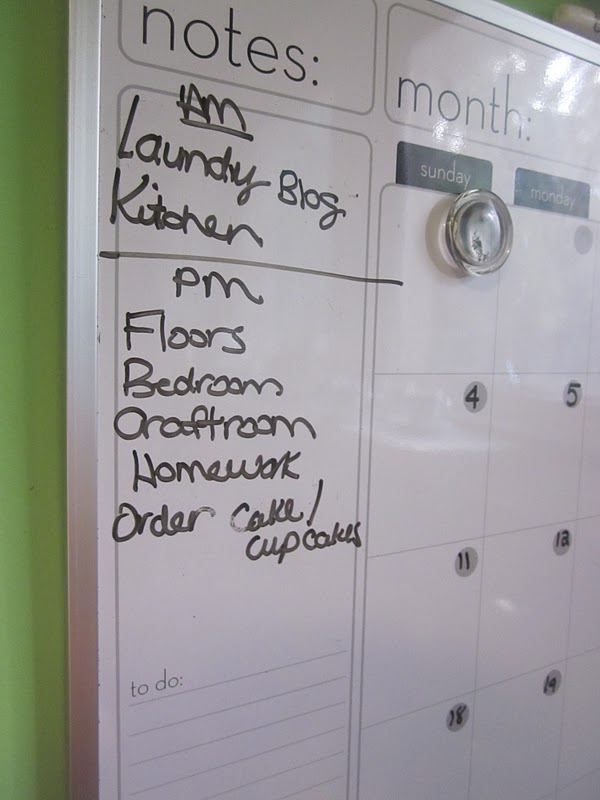 notes:
month:
AM
Laundry Blog
Kitchen
PM
Floors
Bedroom
Craftroom
Homework
Order Cake/
cupcakes
to do:
sunday
monday
4
5
11
12
18
19